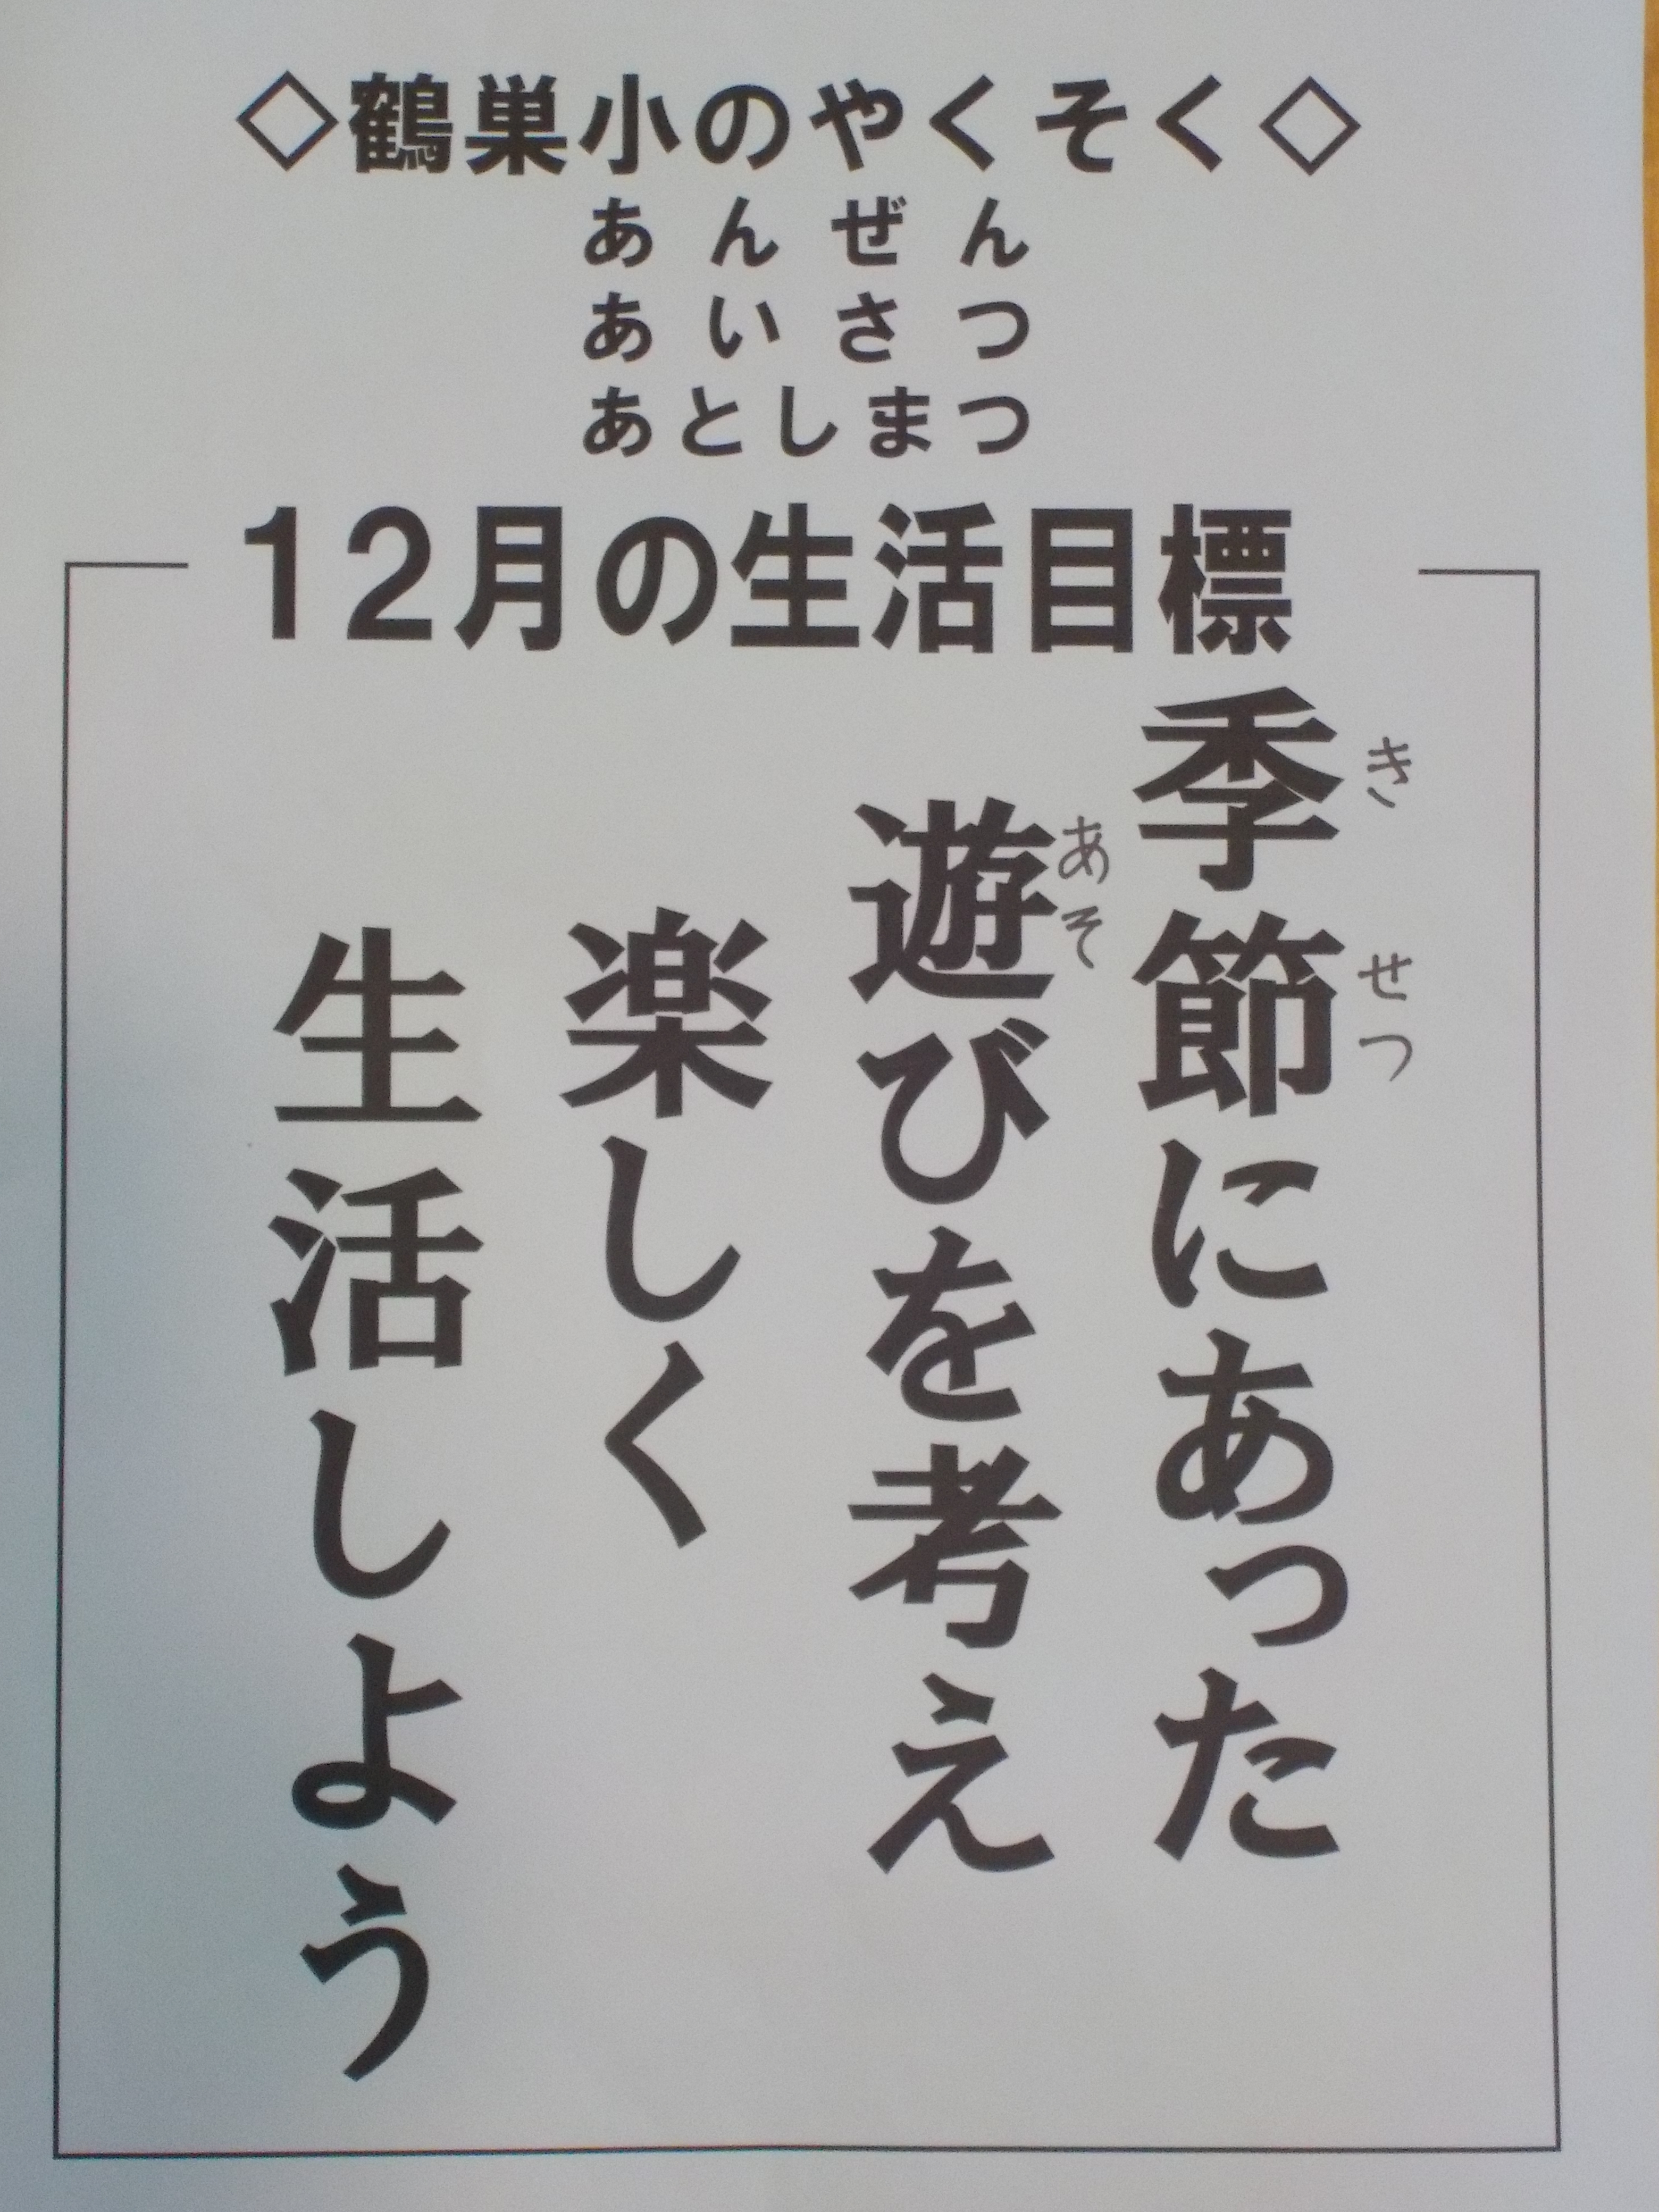 ◇鶴巣小のやくそく◇
あんぜん
あいさつ
あとしまつ
12月の生活目標
季節にあった
きせつ
遊びを考え
あそ
楽しく
生活しよう